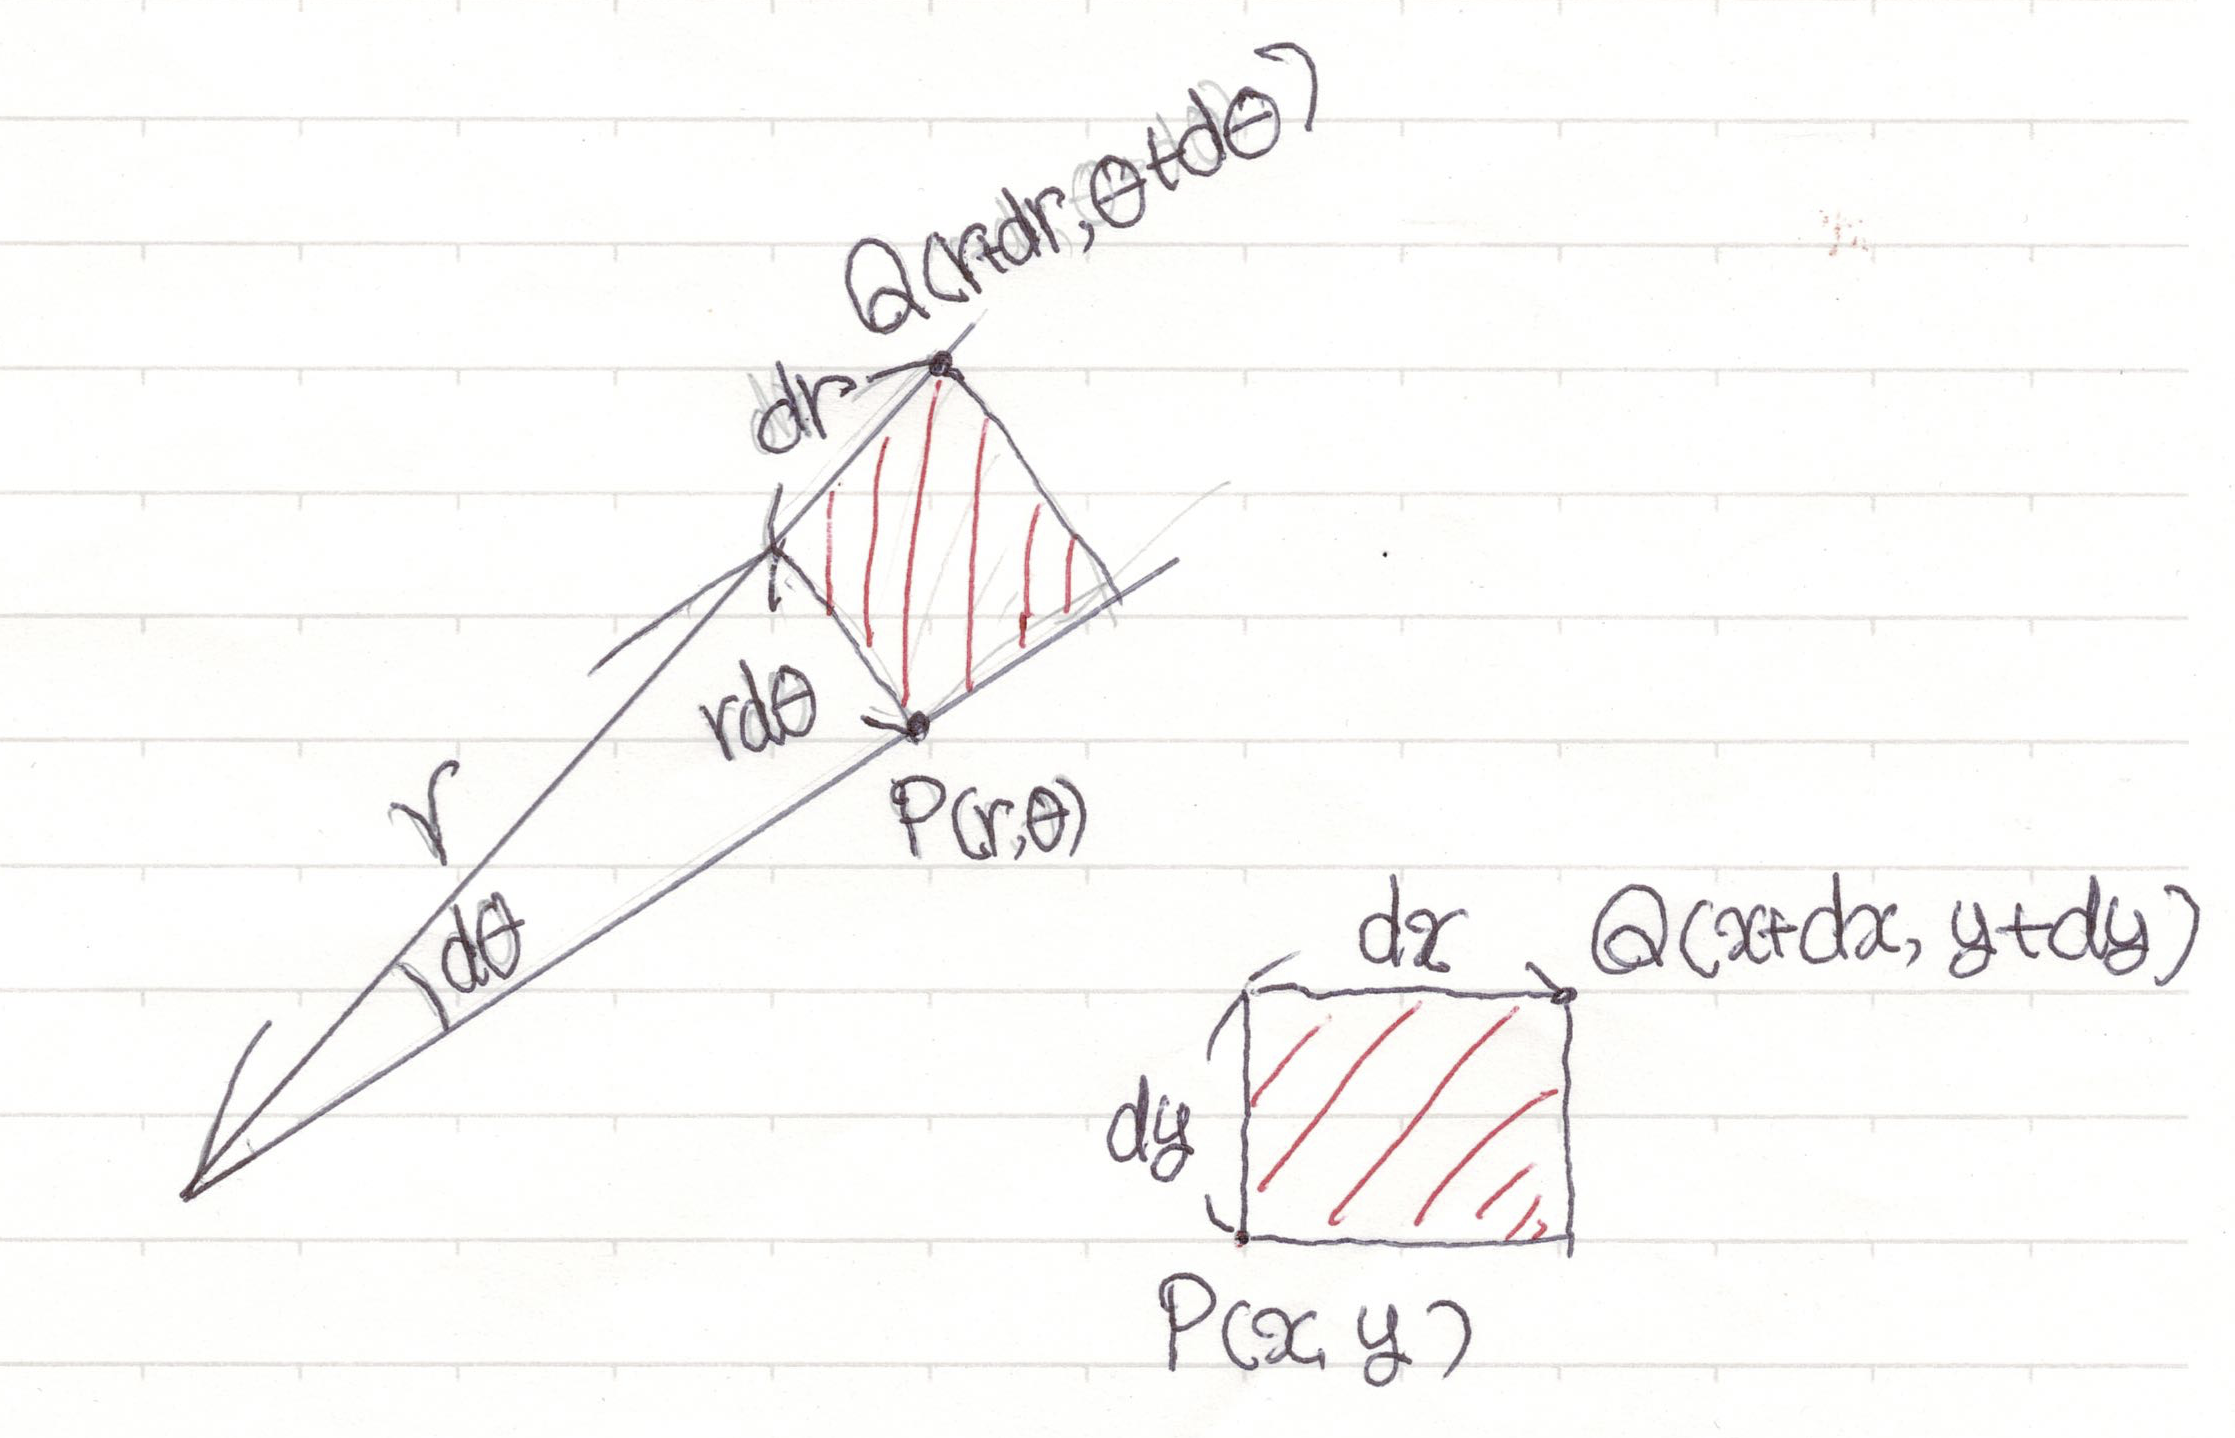 Q(r+dr, θ+dθ)
dr
rdθ
r
P(r,θ)
dθ
dx
Q(x+dx, y+dy)
dy
P(x, y)